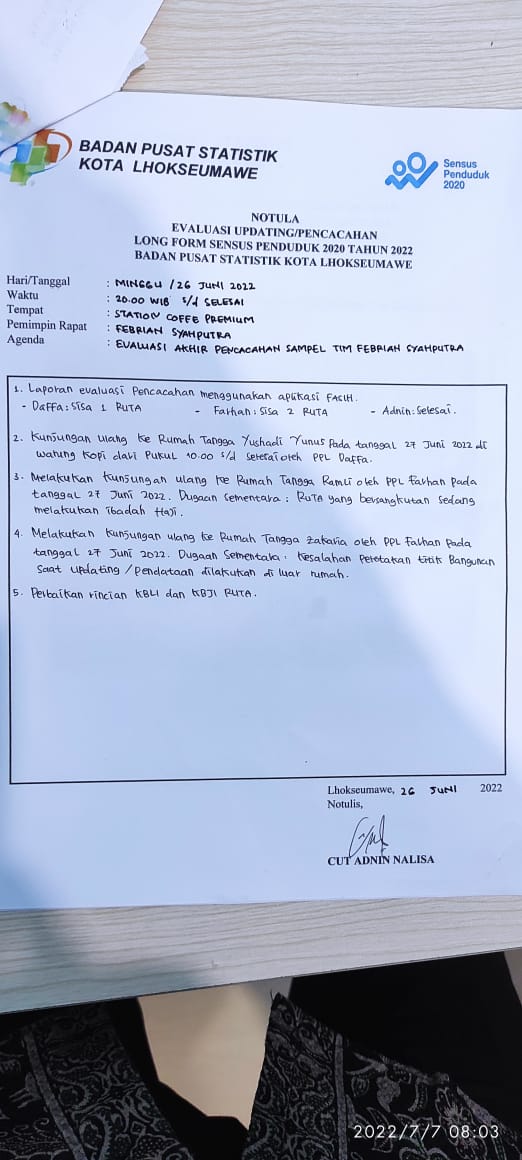 BADAN PUSAT STATISTIK
KOTA LHOKSEUMAWE
Sensus
Penduduk
2020
NOTULA
EVALUASI UPDATING/PENCACAHAN
LONG FORM SENSUS PENDUDUK 2020 TAHUN 2022
BADAN PUSAT STATISTIK KOTA LHOKSEUMAWE
Hari/Tanggal : MINGGU /26 JUNI 2022
Waktu : 20.00 WIB s/d SELESAI
Tempat : STATION COFFE PREMIUM
Pemimpin Rapat : FEBRIAN SYAHPUTRA
Agenda : EVALUASI AKHIR PENCACAHAN SAMPEL TIM FEBRIAN SYAHPUTRA
1. Laporan evaluasi Pencacahan menggunakan aplikasi FASIH.
- Daffa : Sisa 1 RUTA - Farhan : Sisa 2 RUTA - Adnin : Selesai.
2. Kunjungan ulang ke Rumah Tangga Yushadi Yunus Pada tanggal 27 Juni 2022 di
warung kopi dari Pukul 10.00 s/d selesai oleh PPL Daffa.
3. Melakukan kunjungan ulang ke Rumah Tangga Ramli oleh PPL Farhan pada
tanggal 27 Juni 2022. Dugaan Sementara : RUTA yang bersangkutan sedang
melakukan ibadah Haji.
4. Melakukan kunjungan ulang ke Rumah Tangga Zakaria oleh PPL Farhan pada
tanggal 27 Juni 2022. Dugaan Sementara : Kesalahan Peletakan titik Bangunan
Saat Updating / Pendataan dilakukan di luar rumah.
5. Perbaikan rincian KBLI dan KBJI RUTA.
Lhokseumawe, 26 JUNI 2022
Notulis,
CUT ADNIN NALISA
2022/7/7 08:03